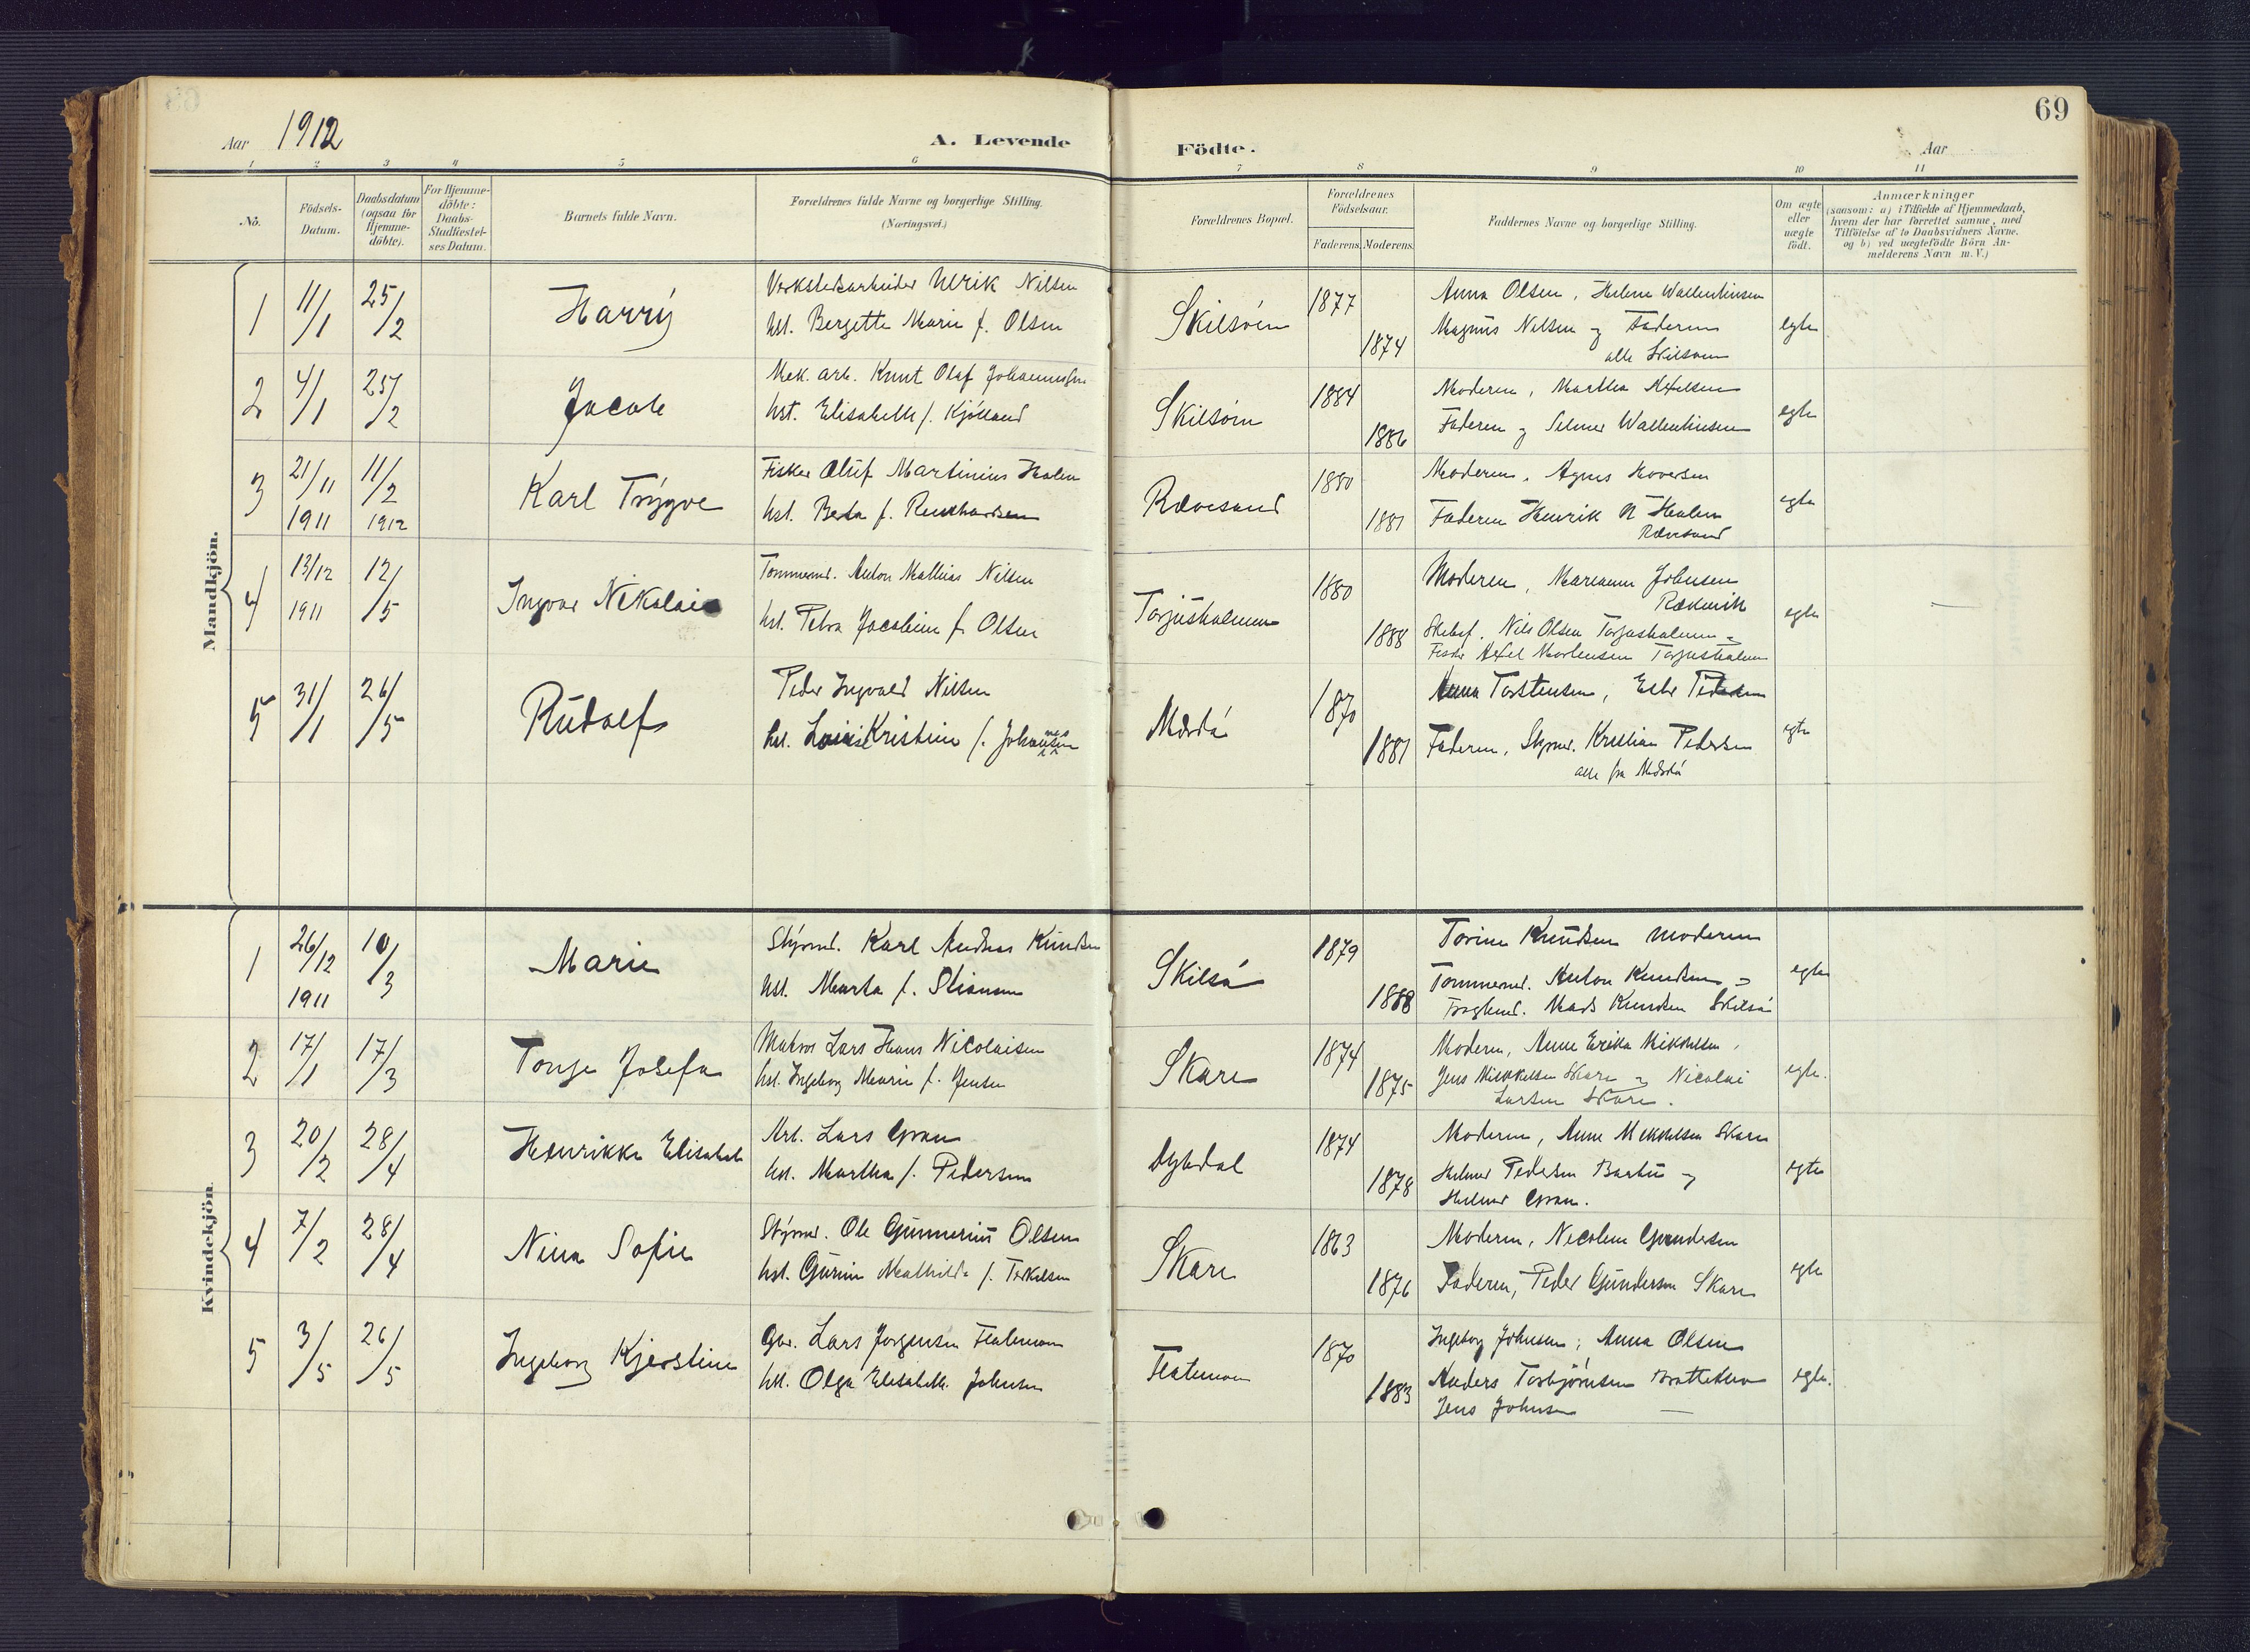 69
Aar 1912
A. Levende Födte.
Aar
1 2 3 4 5 6 7 8 9 10 11
No.
Födsels-Datum.
Daabsdatum (ogsaa for Hjemme-döbte).
For Hjemme-döbte: Daabs-Stadfæstel-ses Datum.
Barnets fulde Navn.
Forældrenes fulde Navne og borgerlige Stilling.
(Næringsvei.)
Forældrenes Bopæl.
Forældrenes Födselsaar.
Faderens. Moderens.
Faddernes Navne og borgerlige Stilling.
Om ægte eller uægte födt.
Anmærkninger
(saasom: a) i Tilfælde af Hjemmedaab,
hvem der har forrettet samme, med
Tilföielse af to Daabsvidners Navne.
og b) ved uægtefödte Börn An-
melderens Navn m. V.)
Mandkjön.
1 11/1 25/2 Harry
Verkstedsarbeider Ulrik Nilsen
hst. Bergette Marie f. Olsen
Skilsöen 1877 1874
Anna Olsen, Helene Wallentinsen
Magnus Nilsen og Faderen
alle Skilsöen
egte
2 4/1 25/2 Jacob
Mek. arb. Knut Olaf Johannesen
hst. Elisabeth f. Kjölland
Skilsöen 1884 1886
Moderen, Martha Axelsen
Faderen og Selmer Wallentinsen
egte
3 21/11 1911 11/2 1912 Karl Trygve
Fisker Oluf Martinius Holen
hst. Berta f.
Rævesand 1880 1881
Moderen, Agnes
Faderen Henrik
Rævesand
egte
4 13/12 1911 12/5 Ingvar Nikolai
Tömmermd. Anton Mathias Nilsen
hst. Petra Jacobine f. Olsen
Torjusholmen 1880 1888
Moderen, Marianne Johnsen
Nils Olsen Torjusholmen
Fisker Axel Mortensen Torjusholmen
egte
—
5 31/1 26/5 Rudolf
Peder Ingvald Nilsen
hst. Louise Kristine f. Johannesen
Mærdö 1870 1881
Anna Torstensen, Pedersen
Faderen, Kristian Pedersen
alle fra Mærdö
egte
Kvindekjön.
1 26/12 1911 10/3 Marie
Styrmd. Karl Andreas Knudsen
hst. Marta f. Stiansen
Skilsö 1879 1888
Torine Knudsen Moderen
Tömmermd. Anton Knudsen og
Mads Knudsen Skilsö
egte
2 17/1 17/3 Tonje Josefa
Matros Lars Hans Nicolaisen
hst. Ingeborg Marie f. Jensen
Skare 1874 1875
Moderen, Anne Erika Mikkelsen,
Jens Mikkelsen Skare og Nicolai
Larsen Skare.
egte.
3 20/2 28/4 Henrikke Elisabeth
Arb. Lars Gran
hst. Martha f. Pedersen
Dybdal 1874 1878
Moderen, Anne Mikkelsen Skare
Helmer Pedersen Barbu og
Gran.
egte
4 7/2 28/4 Nina Sofie
Styrmd. Ole Gunnerius Olsen
hst. Gurine Mathilde f. Terkelsen
Skare 1863 1876
Moderen, Nicoline Gundersen
Faderen, Peder Gundersen Skare
egte
5 3/5 26/5 Ingeborg Kjerstine
Gbr. Lars Jorgensen Flademoen
hst. Olga Elisabeth Johnsen
Flatemoen 1870 1883
Ingeborg Johnsen, Anna Olsen
Anders Torbjörnsen
Jens Johnsen —
egte.